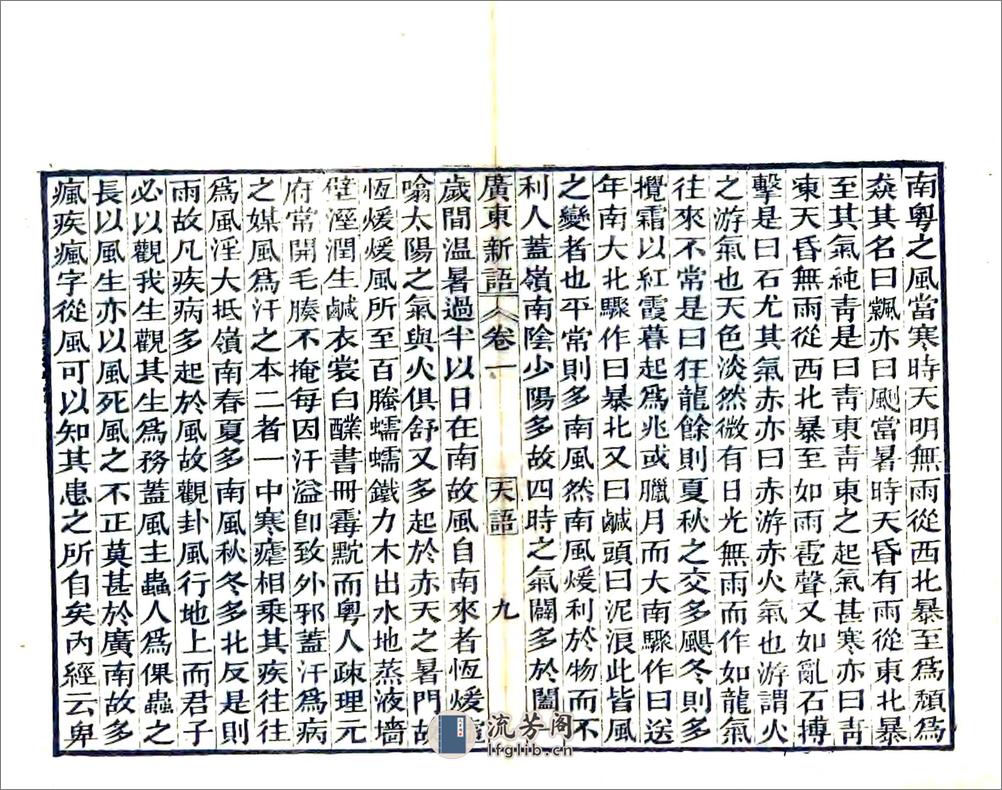 南粤之風當寒時天明無雨從西北暴至爲颓爲
猋其名曰飄亦曰颰當暑時天昏有雨從東北暴
至其氣純靑是曰靑東靑東之起氣甚寒亦曰靑
凍天昏無雨從西北暴至如雨雹聲又如亂石搏
擊是曰石尤其氣赤亦曰赤游赤火氣也游謂火
之游氣也天色淡然微有日光無雨而作如龍氣
往來不常是曰狂龍餘則夏秋之交多颶冬則多
攪霜以紅霞暮起爲兆或臘月而大南驟作曰送
年南大北驟作曰暴北又曰鹹頭曰泥浪此皆風
之變者也平常則多南風然南風煖利於物而不
利人蓋嶺南陰少陽多故四時之氣闢多於闔
廣東新語 卷一 天語 九
歲間温暑過半以日在南故風自南來者恆煖
噏太陽之氣與火俱舒又多起於赤天之暑門故
恆煖煖風所至百螣蠕蠕鐵力木出水地蒸液墻
壁溼潤生鹹衣裳白醭書冊霉黓而粤人疎理元
府常開毛腠不掩每因汗溢卽致外邪蓋汗爲病
之媒風爲汗之本二者一中寒瘧相乗其疾往往
爲風淫大抵嶺南春夏多南風秋冬多北反是則
雨故凡疾病多起於風故觀卦風行地上而君子
必以觀我生觀其生爲務蓋風主蟲人爲倮蟲之
長以風生亦以風死風之不正莫甚於廣南故多
瘋疾瘋字從風可以知其患之所自矣內經云卑
流芳阁
lfglib.cn